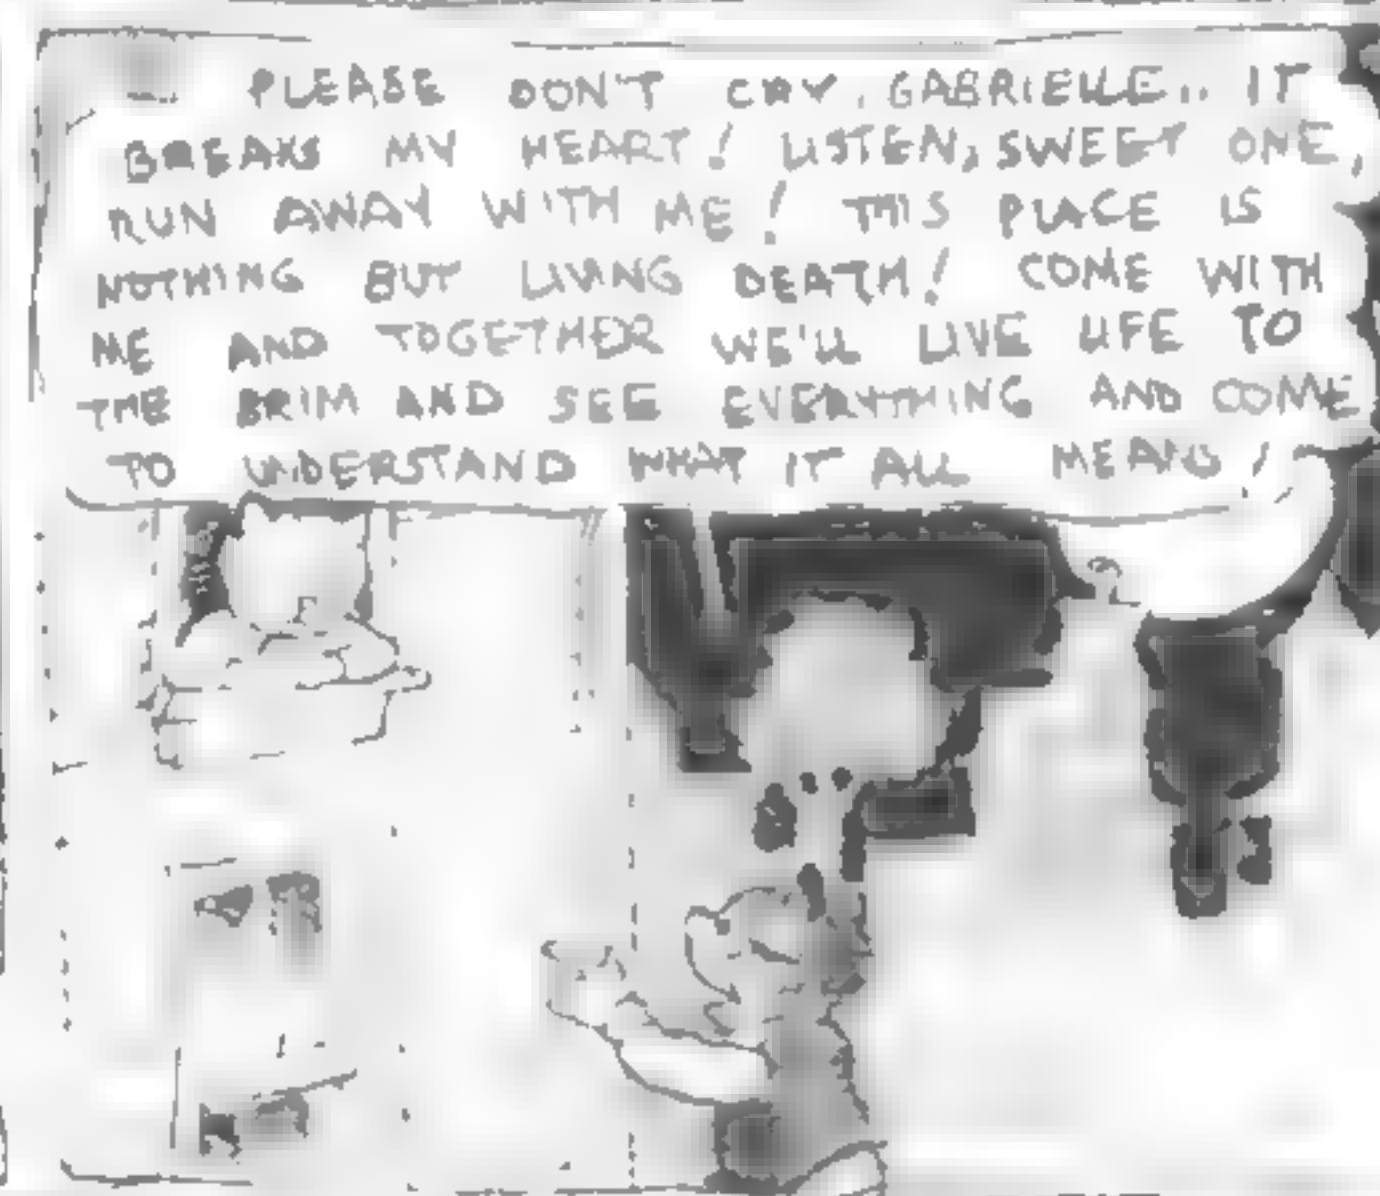 PLEASE DON'T CRY, GABRIELLE.. IT
BREAKS MY HEART! LISTEN, SWEET ONE,
RUN AWAY WITH ME! THIS PLACE IS
NOTHING BUT LIVING DEATH! COME WITH
ME AND TOGETHER WE'LL LIVE LIFE TO
THE BRIM AND SEE EVERYTHING AND COME
TO UNDERSTAND WHAT IT ALL MEANS!